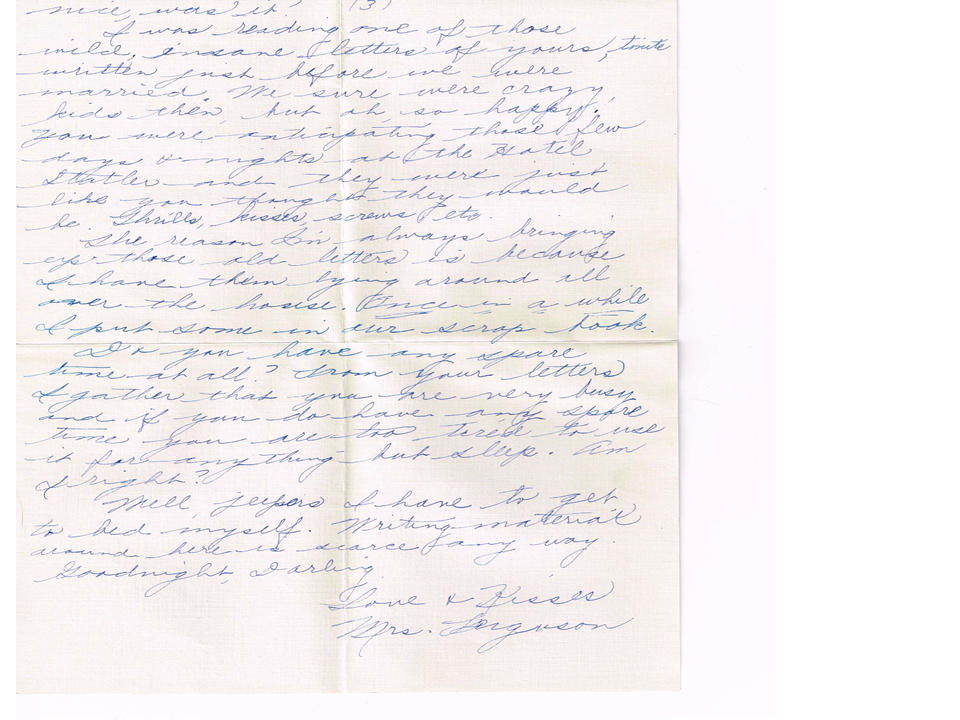 nice, was it? (3)
I was reading one of those
wild, insane letters of yours, tonite
written just before we were
married. We sure were crazy
kids then, but oh, so happy.
You were anticipating those few
days & nights at the Hotel
Statler and they were just
like you thought they would
be. Thrills, kisses, screws, etc.
The reason I'm always bringing
up those old letters is because
I have them lying around all
over the house. Once in a while
I put some in our scrap book.
Do you have any spare
time at all? From your letters
I gather that you are very busy
and if you do have any spare
time you are too tired to use
it for anything but sleep. Am
I right?
Well, jeepers I have to get
to bed myself. Writing material
around here is scarce any way.
Goodnight, Darling
Love & Kisses
Mrs. Ferguson